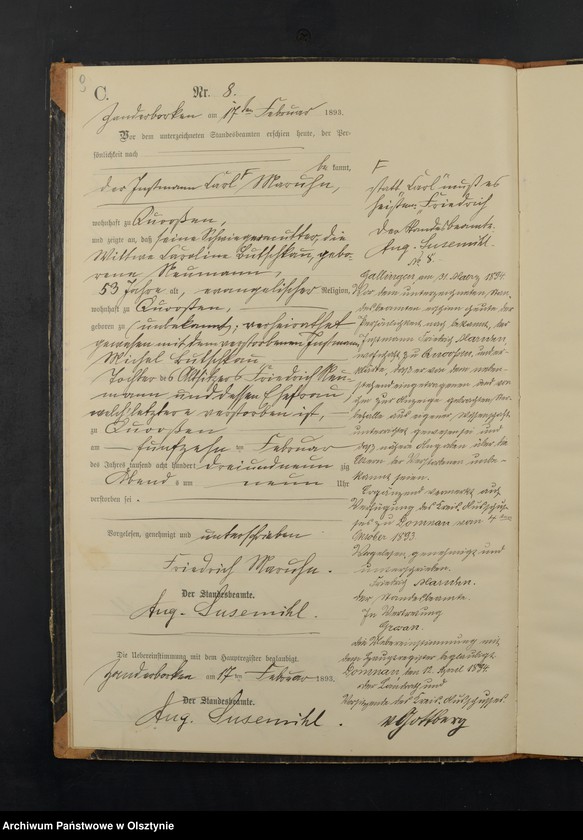 C.
Nr. 8.
Zanderborken am 17ten Februar 1893.
Vor dem unterzeichneten Standesbeamten erschien heute, der Per-
sönlichkeit nach
be kannt,
der Instmann Carl F Maruhn,
wohnhaft zu Quoossen,
und zeigte an, daß seine Schwiegermutter, die
Wittwe Caroline Butschkau, gebo-
rene Neumann,
53 Jahre alt, evangelischer Religion,
wohnhaft zu Quoossen,
geboren zu unbekannt, verheirathet
gewesen mit dem verstorbenen Instmann
Michel Butschkau
Tochter des Altsitzers Friedrich Neu-
mann und dessen Ehefrau,
welch letztere verstorben ist,
zu Quoossen
am fünfzehn ten Februar
des Jahres tausend acht hundert dreiundneun zig
Abends um neun Uhr
verstorben sei.
Vorgelesen, genehmigt und unterschrieben
Friedrich Maruhn.
Der Standesbeamte.
Aug. Susemihl.
Die Uebereinstimmung mit dem Hauptregister beglaubigt
Zanderborken am 17ten Februar 1893.
Der Standesbeamte.
Aug. Susemihl.
F
statt "Carl" muß es
heißen "Friedrich"
Der Standesbeamte.
Aug. Susemihl.
N 8.
Gallingen, am 31. März 1894
Vor dem unterzeichneten Stan-
desbeamten erschien heute der
Persönlichkeit nach bekannt, der
Instmann Friedrich
wohnhaft zu Quoossen, und er-
klärte, daß er von dem neben-
stehend eingetragenen
ihm zur Anzeige gebrachten Ster-
befalle aus eigener Wissenschaft
unterrichtet gewesen sei und
daß nähere Angaben über die
Eltern der Verstorbenen unbe-
kannt seien.
Ergänzend vermerkt auf
Verfügung des Kreis-Ausschus-
ses zu Domnau vom
Oktober 1893
Vorgelesen, genehmigt und
unterschrieben.
Friedrich
Der Standesbeamte.
In Vertretung
Die Uebereinstimmung mit
dem Hauptregister beglaubigt
Domnau, den 12. April 1894.
Der Landrath und
Vorsitzende des Kreis-Ausschusses.
v. Gottberg
Archiwum Państwowe w Olsztynie